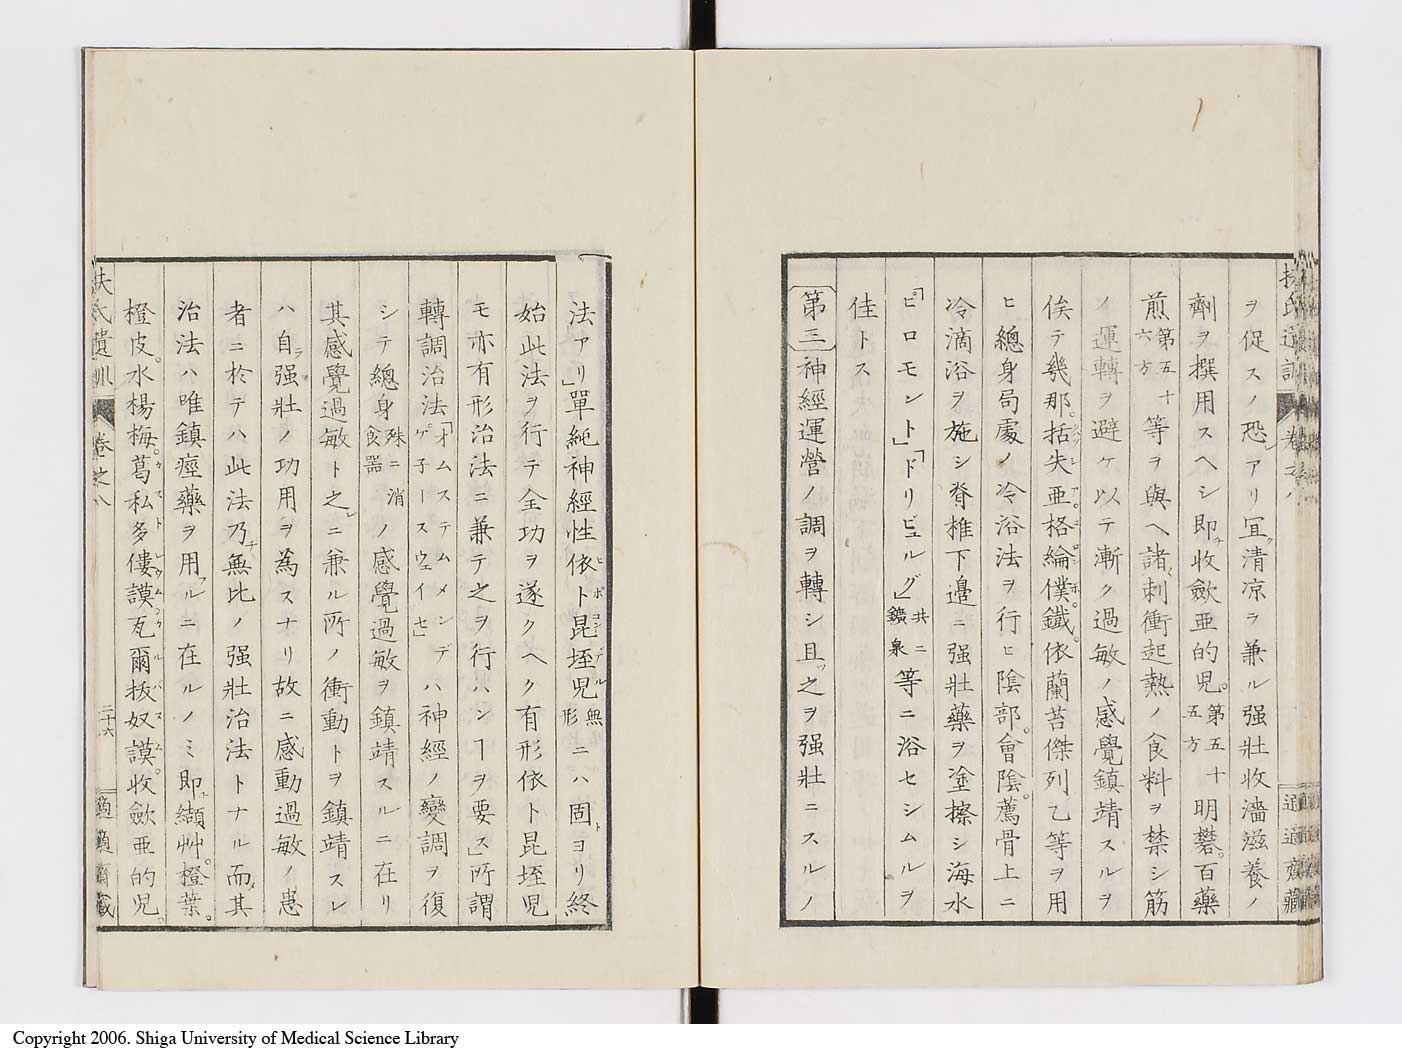 ヲ促スノ恐アリ宜ク清凉ヲ兼ル强壯收濇滋養ノ
劑ヲ撰用スヘシ卽チ收歛亜的児。第五十五方明礬。百藥
煎第五十六方等ヲ與ヘ諸刺衝起熱ノ食料ヲ禁シ筋
ノ運轉ヲ避ケ以テ漸ク過敏ノ感覺鎮靖スルヲ
俟テ幾那。括失亜。格綸僕。鐵。依蘭苔傑列乙等ヲ用
ヒ總身局處ノ冷浴法ヲ行ヒ陰部。會陰。薦骨上ニ
冷滴浴ヲ施シ脊椎下邉ニ强壯藥ヲ塗擦シ海水
「ピロモント」「ドリビュルグ」共ニ鑛泉等ニ浴セシムルヲ
佳トス
第三神經運營ノ調ヲ轉シ且ツ之ヲ强壯ニスルノ
扶氏遺訓 卷之八 適適齋藏
法アリ」單純神經性依卜昆垤児ヒポコンデル無形ニハ固トヨリ終
始此法ヲ行テ全功ヲ遂クヘク有形依卜昆垤児
モ亦有形治法ニ兼テ之ヲ行ハンヿヲ要ス」所謂
轉調治法「オムステムメンデゲ子ースウェイセ」ハ神經ノ變調ヲ復
シテ總身殊ニ消食器ノ感覺過敏ヲ鎮靖スルニ在リ
其感覺過敏ト之レニ兼ル所ノ衝動トヲ鎮靖スレ
ハ自ラ强壯ノ功用ヲ為スナリ故ニ感動過敏ノ患
者ニ於テハ此法乃チ無比ノ强壯治法トナル而メ其
治法ハ唯鎮痙藥ヲ用フルニ在ルノミ卽チ纈艸。橙葉。
橙皮。水楊梅。葛私多僂謨カストレウム。瓦爾抜奴謨ガルバヌム。收歛亜的児。
扶氏遺訓 卷之八 二十六 適適齋藏
Copyright 2006. Shiga University of Medical Science Library